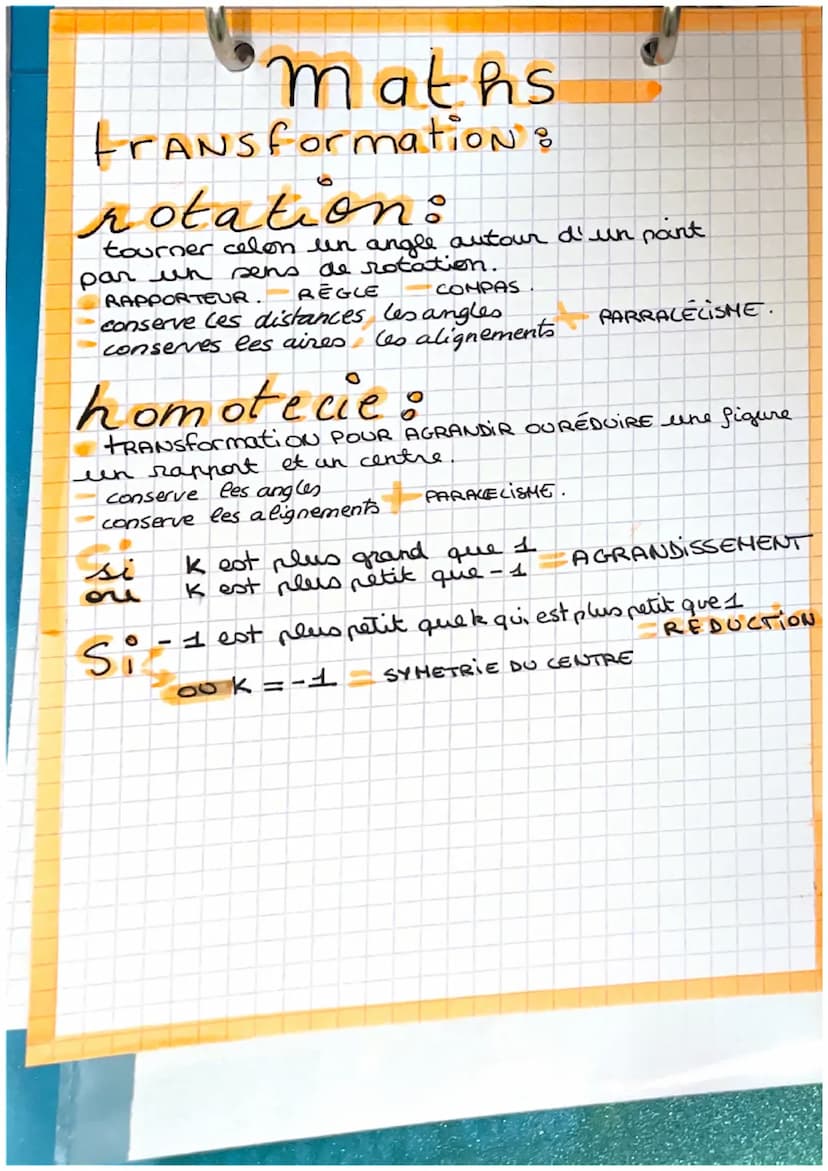 maths
trANSformatiON :
rotation :
tourner celon un angle autour d'un point
par un sens de rotation.
- RAPPORTEUR. - RÈGLE - COMPAS.
- conserve les distances, les angles
- conserves les aires, les alignements + PARRALÉLISME.
homotecie :
- tRANSformatioN POUR AGRANDIR OU RÉDUIRE une figure
un rapport et un centre.
- conserve les angles
- conserve les alignements + PARALELISME.
si K est plus grand que 1 = AGRANDISSEMENT
ou K est plus petit que -1
Si -1 est plus petit que k qui est plus petit que 1
= RÉDUCTION
ou K = -1 = SYMETRIE DU CENTRE